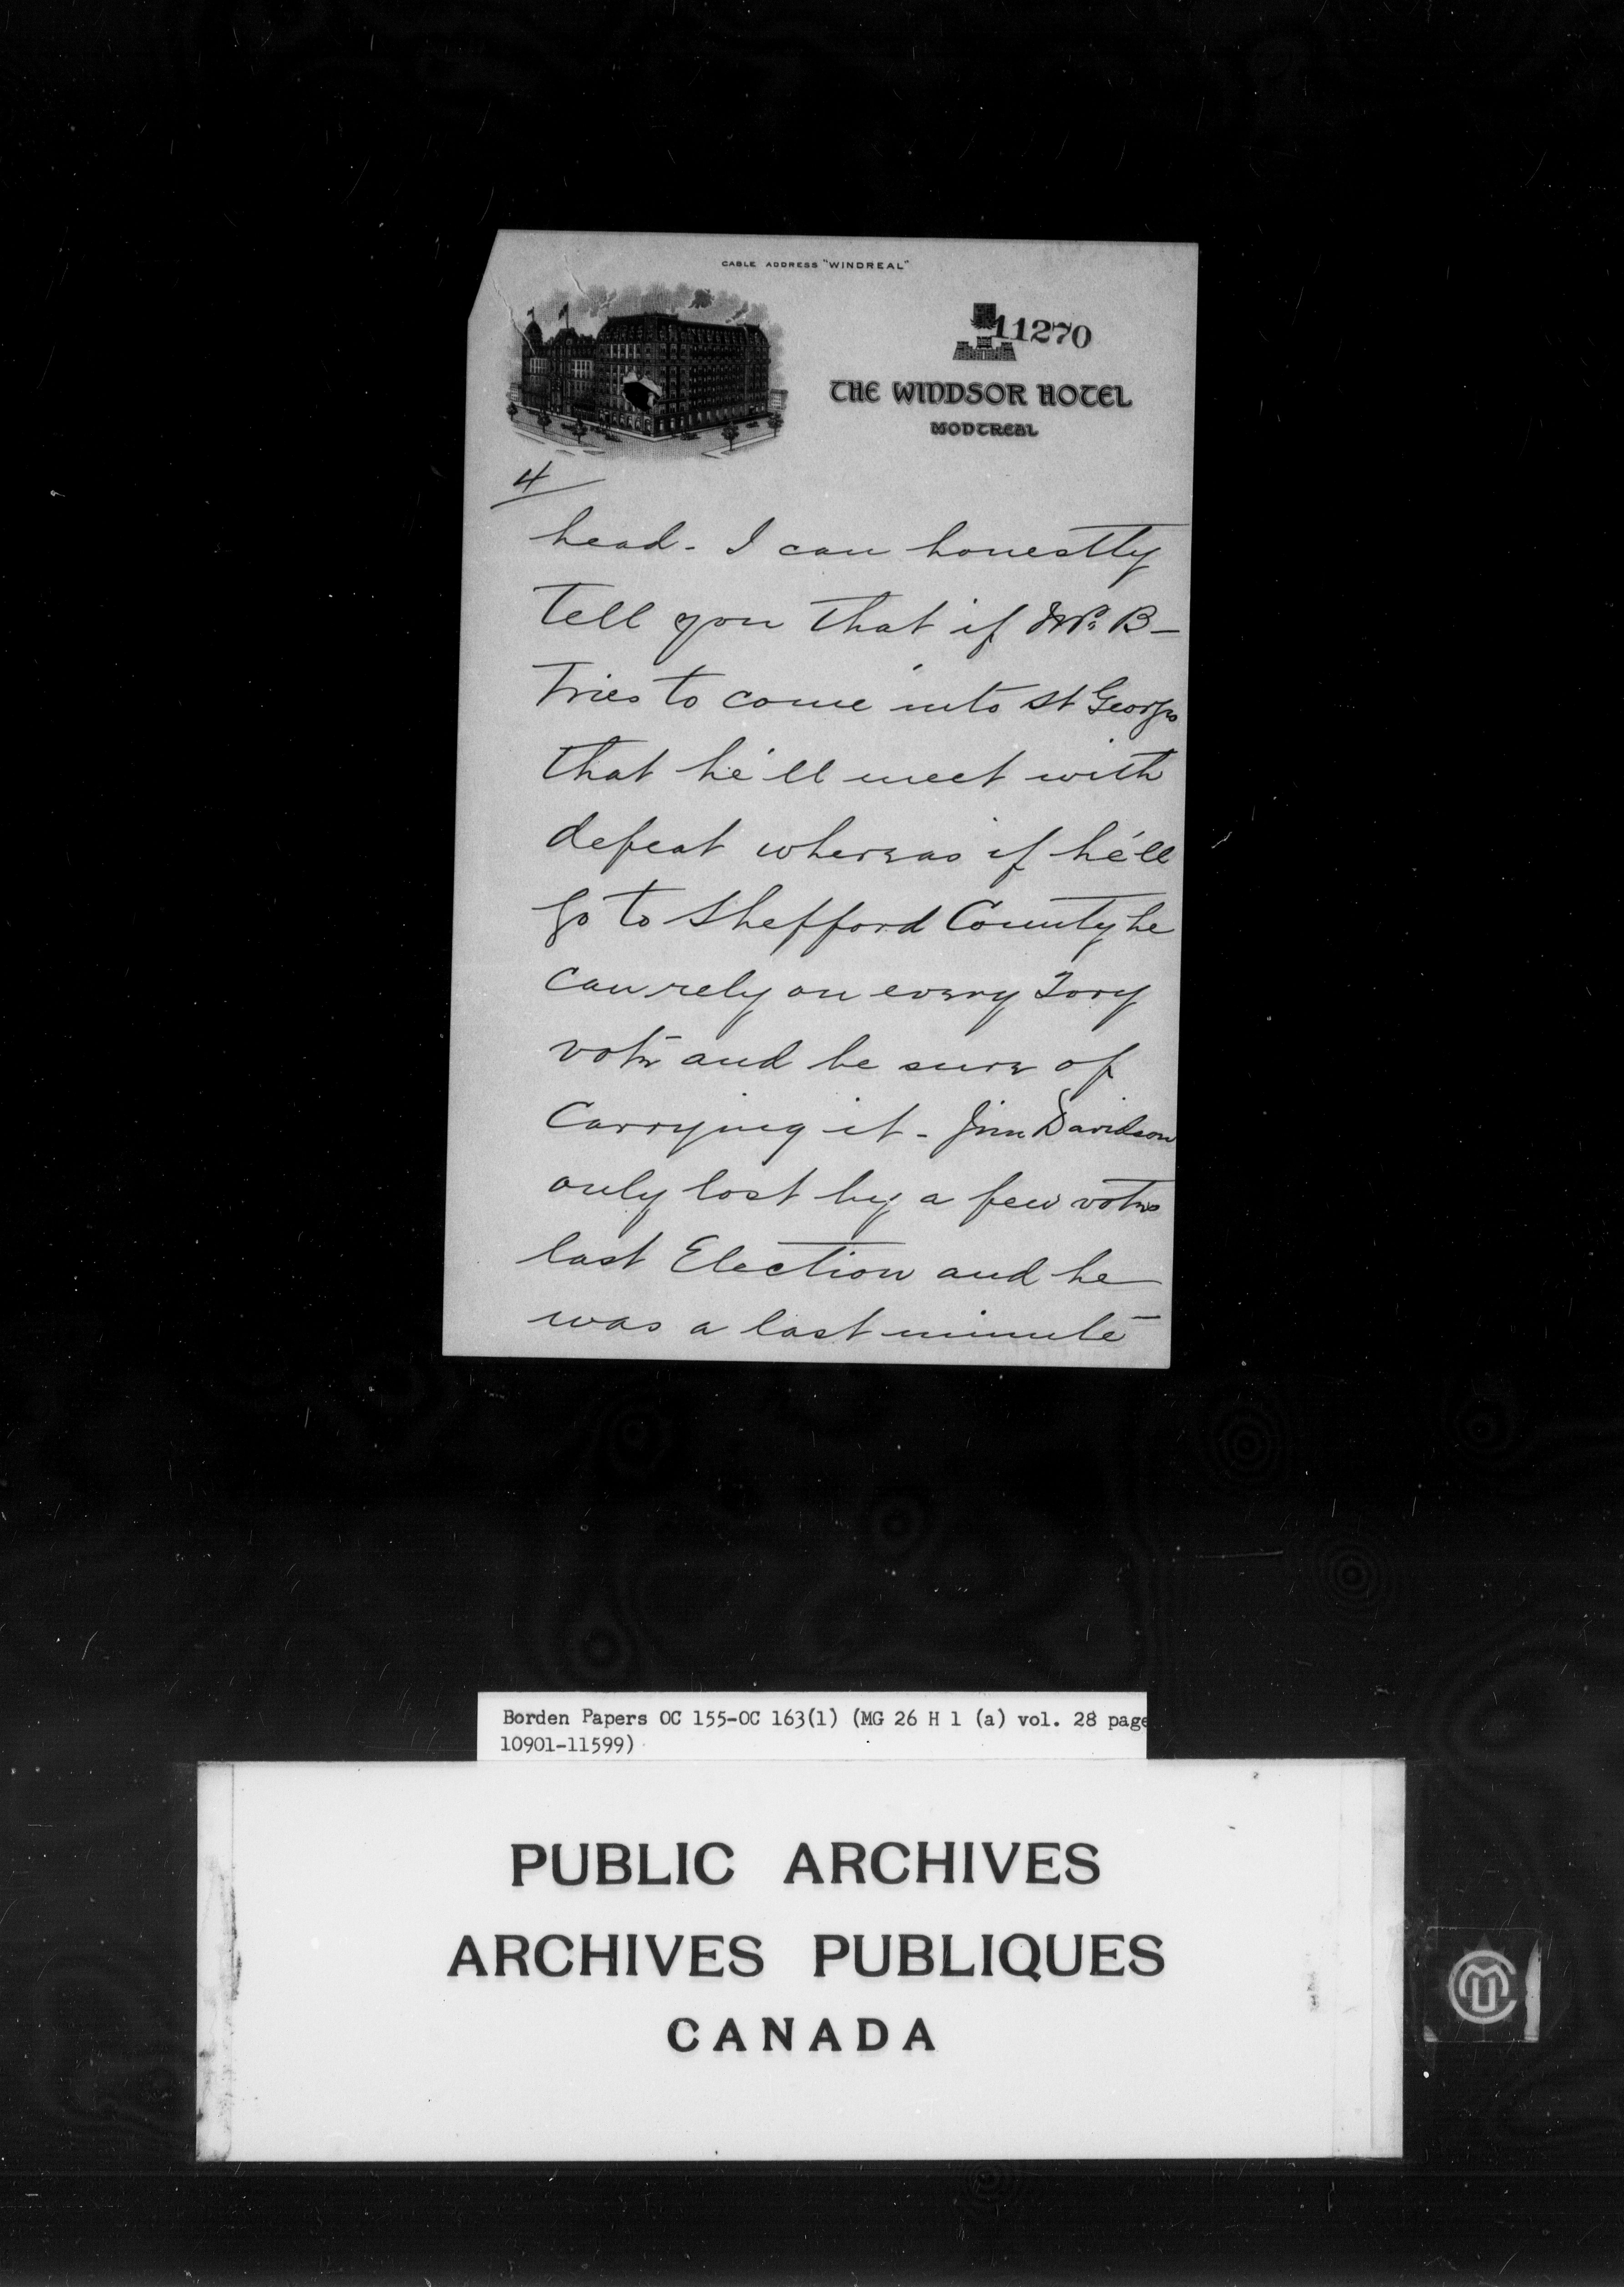 CABLE ADDRESS "WINDREAL"
11270
THE WINDSOR HOTEL
MONTREAL
4
head - I can honestly
tell you that if Mr. B—
tries to come into St Georges
that he'll meet with
defeat whereas if he'll
go to Shefford County he
can rely on every Tory
vote and be sure of
carrying it - Jim Davidson
only lost by a few votes
last Election and he
was a last minute
Borden Papers OC 155-OC 163(1) (MG 26 H 1 (a) vol. 28 page
10901-11599)
PUBLIC ARCHIVES
ARCHIVES PUBLIQUES
CANADA